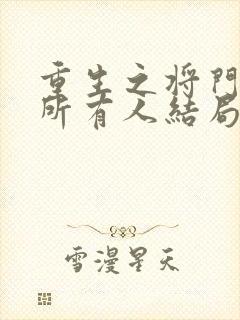 重生之将門
所有人結局
雪漫星天